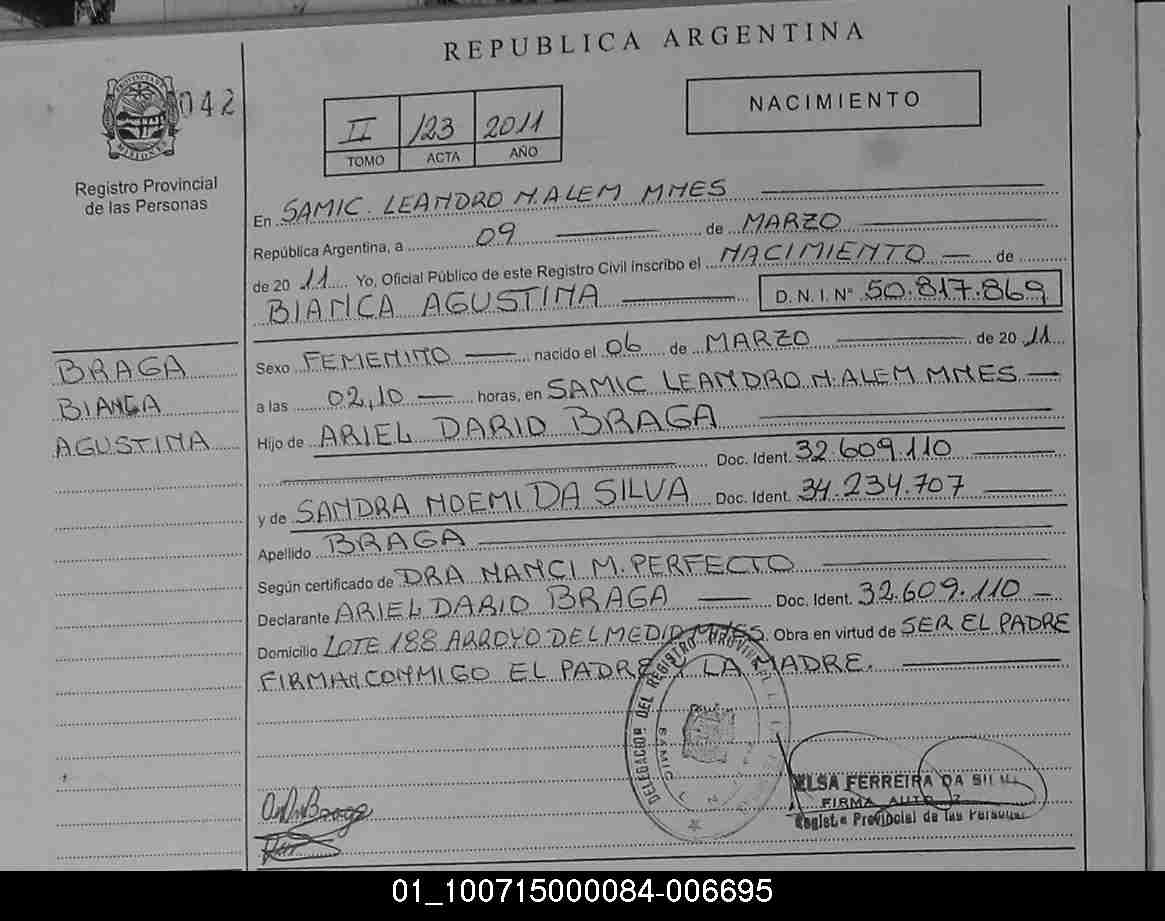 REPUBLICA ARGENTINA
042
NACIMIENTO
II 123 2011
TOMO ACTA AÑO
PROVINCIA DE
MISIONES
Registro Provincial
de las Personas
En SAMIC. LEANDRO N. ALEM MNES
República Argentina, a 09 de MARZO
de 20 11 Yo, Oficial Público de este Registro Civil inscribo el NACIMIENTO de
BIANCA AGUSTINA D.N.I. Nº 50.817.869
BRAGA
BIANCA
AGUSTINA
Sexo FEMENINO nacido el 06 de MARZO de 20 11
a las 02,10 horas, en SAMIC LEANDRO N. ALEM MNES
Hijo de ARIEL DARIO BRAGA
Doc. Ident. 32.609.110
y de SANDRA NOEMI DA SILVA Doc. Ident. 34.234.707
Apellido BRAGA
Según certificado de DRA NANCI M. PERFECTO
Declarante ARIEL DARIO BRAGA Doc. Ident. 32.609.110
Domicilio LOTE 188 ARROYO DEL MEDIO MNES. Obra en virtud de SER EL PADRE
FIRMAN CONMIGO EL PADRE Y LA MADRE.
DELEGACION DEL REGISTRO PROVIN
SAMIC
ELSA FERREIRA DA SILVA
FIRMA AUTO
Registro Provincial de las Personas
Braga
01_100715000084-006695